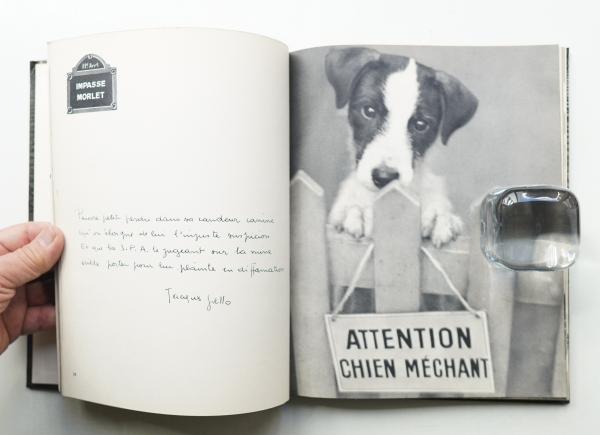 XIe Arrt
IMPASSE
MORLET
Pauvre petit perdu dans sa candeur canine
qu'on charge de lui l'injuste suspicion
Et que la S.P.A. le jugeant sur la mine
veuille porter pour lui plainte en diffamation
Jacques
ATTENTION
CHIEN MÉCHANT